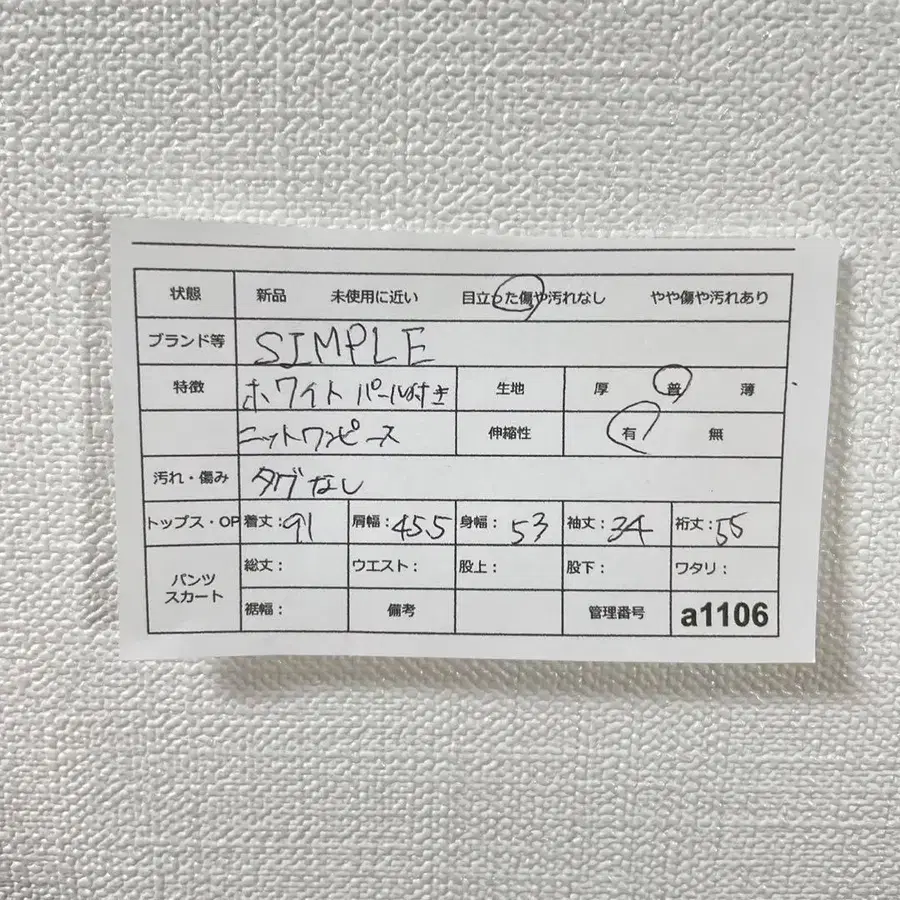 状態 新品 未使用に近い 目立った傷や汚れなし やや傷や汚れあり
ブランド等 SIMPLE
特徴 ホワイト パール付き 生地 厚 普 薄
ニットワンピース 伸縮性 有 無
汚れ・傷み タグなし
トップス・OP 着丈:91 肩幅:45.5 身幅:53 袖丈:34 裄丈:55
パンツ スカート 総丈: ウエスト: 股上: 股下: ワタリ:
裾幅: 備考 管理番号 a1106